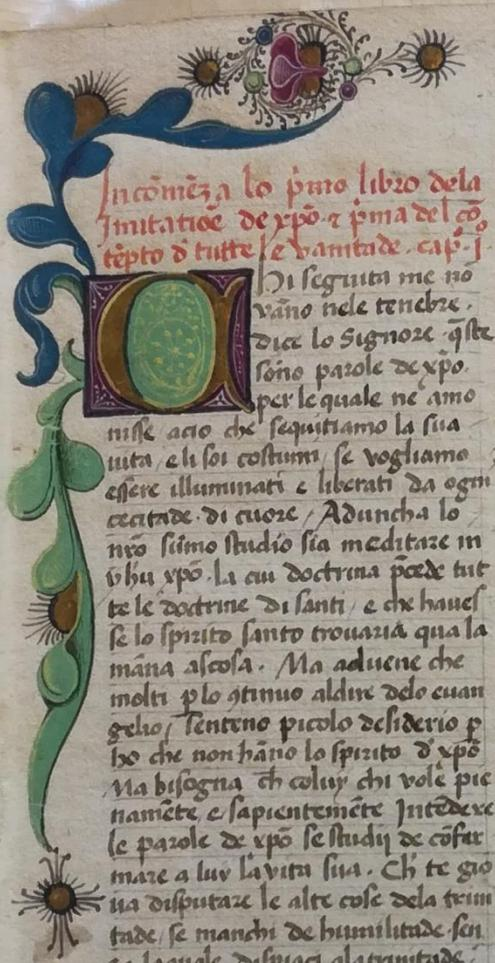 Incōmēza lo p̄mo libro dela
Imitatioē de xp̄o ⁊ p̄ma del cō
tēpto d̄ tutte le vanitade . cap̊. j̊
Chi seguita me nō
vāno nele tenebre .
dice lo Signore . q̄ste
sōno parole de xp̄o .
per le quale ne amo
nisse acio che sequitiamo la sua
uita / e li soi costumi / se vogliamo
essere illuminati e liberati da ogni
cecitade . di cuore / Aduncha lo
nr̄o sūmo studio sia meditare in
yhu xp̄o . la cui doctrina p̄cede tut
te le doctrine di santi / e che haues
se lo spirito santo trouaria qua la
māna ascosa . Ma aduene che
molti ꝑ lo ꝯtinuo aldire delo euan
gelio / senteno picolo desiderio ꝑ
ho che non hāno lo spirito d' xp̄o
Ma bisogna ch̄ coluy chi vole pie
namēte / e sapientemēte Intēdere
le parole de xp̄o se studij de cōfor
mare a luy la vita sua . Ch̄ te gio
ua disputare le alte cose dela trini
tade / se manchi de humilitade . sen
za la quale despiaci ala trinitade .